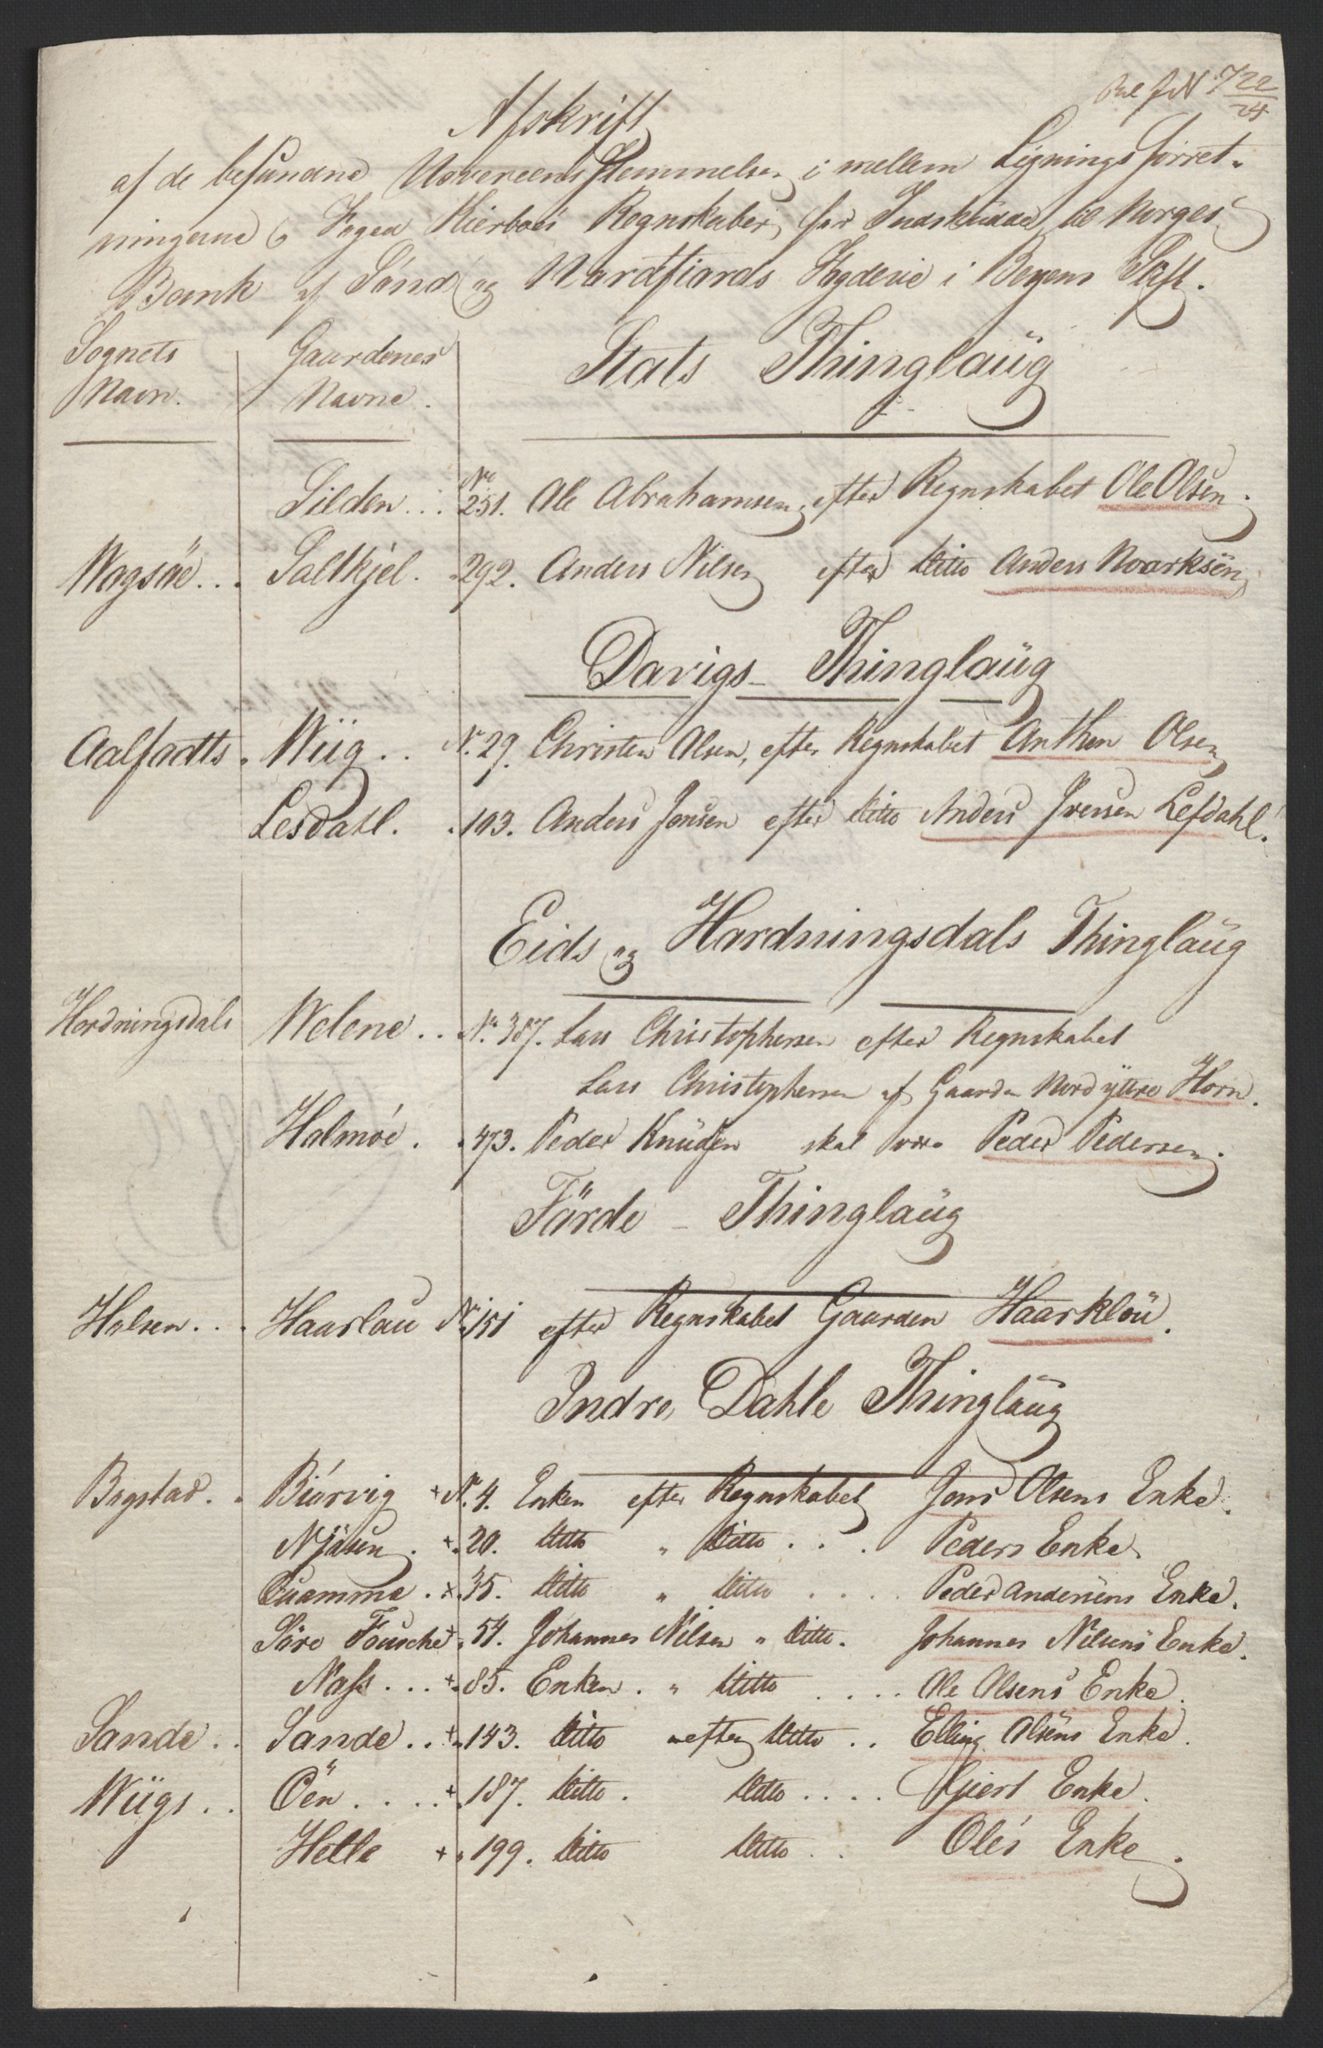 722/24
Afskrift
af de befundne Uovereensstemmelser i mellem Lignings forret-
ningerne og Foged Kierboes Regnskaber, for Indskudde til Norges
Bank af Sønd og Nordfiords Fogderie i Bergens Stift.
Sognets Navn. Gaardenes Navne. Stats Thinglaüg
Silden... No 251. Ole Abrahamsen, efter Regnskabet Ole Olsen.
Wagsöe... Saltkjel. 292. Anders Nilsen efter Ditto Anders Noarksön
Davigs Thinglaüg
Aalfodts. Wiig.. No. 29. Christen Olsen, efter Regnskabet Anthon Olsen
Lesdahl. 103. Anders Jonsen efter Ditto Anders Iversen Lefdahl.
Eids og Hordningsdals Thinglaüg
Hordningsdals Welene.. No. 387. Lars Christophersen efter Regnskabet
Lars Christophersen af Gaarden Nord yttre Horn.
Holmöe. 473. Peder Knüdsen skal være Peder Pedersen.
Förde - Thinglaüg
Holsen... Haarlau No. 151 efter Regnskabet Gaarden Haarklöu.
Indre Dahle Thinglaüg
Bygstad. Biörvig + No. 4. Enken efter Regnskabet Jons Olsens Enke.
Njösen. + 20. Ditto " Ditto... Peders Enke.
Quamme. + 35. Ditto " Ditto.... Peder Andersens Enke.
Söre Fousche + 54. Johannes Nilsen " Ditto. Johannes Nilsens Enke.
Nass... + 85. Enken. " Ditto.... Ole Olsens Enke.
Sande.. Sande.. + 143. Ditto efter Ditto.. Elling Olsens Enke.
Wiigs.. Öen.... + 187. Ditto. Ditto.... Giert Enke.
Helle + 199. Ditto Ditto.. Ole's Enke.